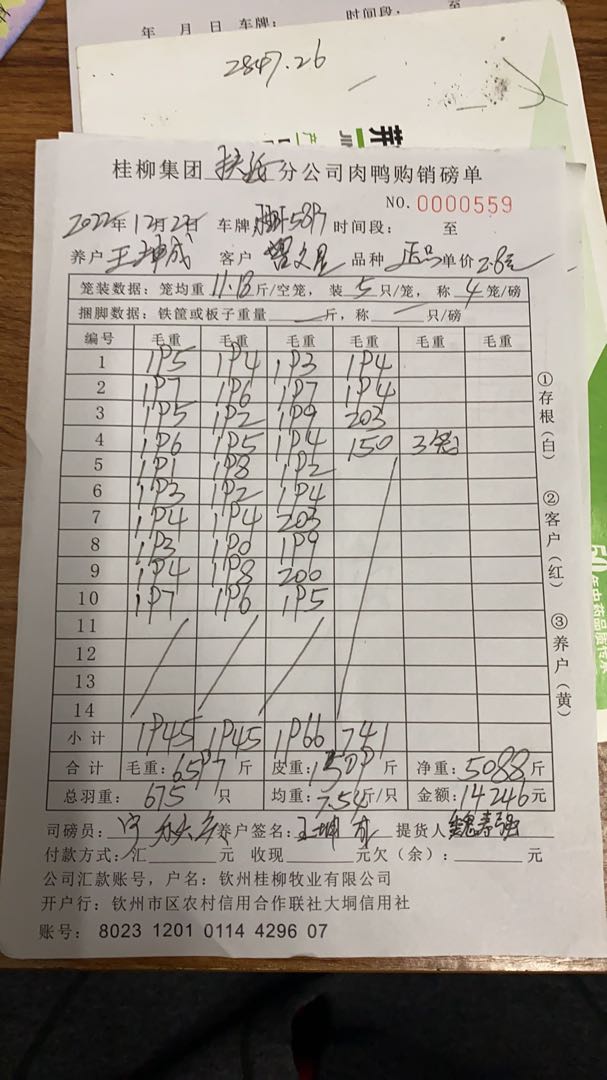 年 月 日 车牌: 时间段: 至
2847.26
桂柳集团 扶绥 分公司肉鸭购销磅单
NO. 0000559
2022年12月22日 车牌: 时间段: 至
养户 王坤成 客户 曾文星 品种 正品 单价 2.8元
笼装数据: 笼均重 11.18 斤/空笼, 装 5 只/笼, 称 4 笼/磅
捆脚数据: 铁筐或板子重量 — 斤, 称 — 只/磅
编号 毛重 毛重 毛重 毛重 毛重 毛重
1 195 194 193 194
2 197 196 197 194
3 195 192 199 203
4 196 195 194 150 3笼
5 191 198 192
6 193 192 194
7 194 194 203
8 193 190 199
9 194 198 200
10 197 196 195
11
12
13
14
小计 1945 1945 1966 741
合计 毛重: 6597 斤 皮重: 1509 斤 净重: 5088 斤
总羽重: 675 只 均重: 7.54 斤/只 金额: 14246 元
司磅员: 养户签名: 王坤成 提货人
付款方式: 汇 元 收现 元欠(余): 元
公司汇款账号, 户名: 钦州桂柳牧业有限公司
开户行: 钦州市区农村信用合作联社大垌信用社
账号: 8023 1201 0114 4296 07
①存根(白)
②客户(红)
③养户(黄)